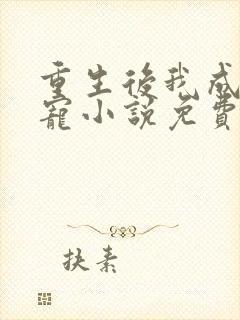 重生後我成
寵小說免費
扶素